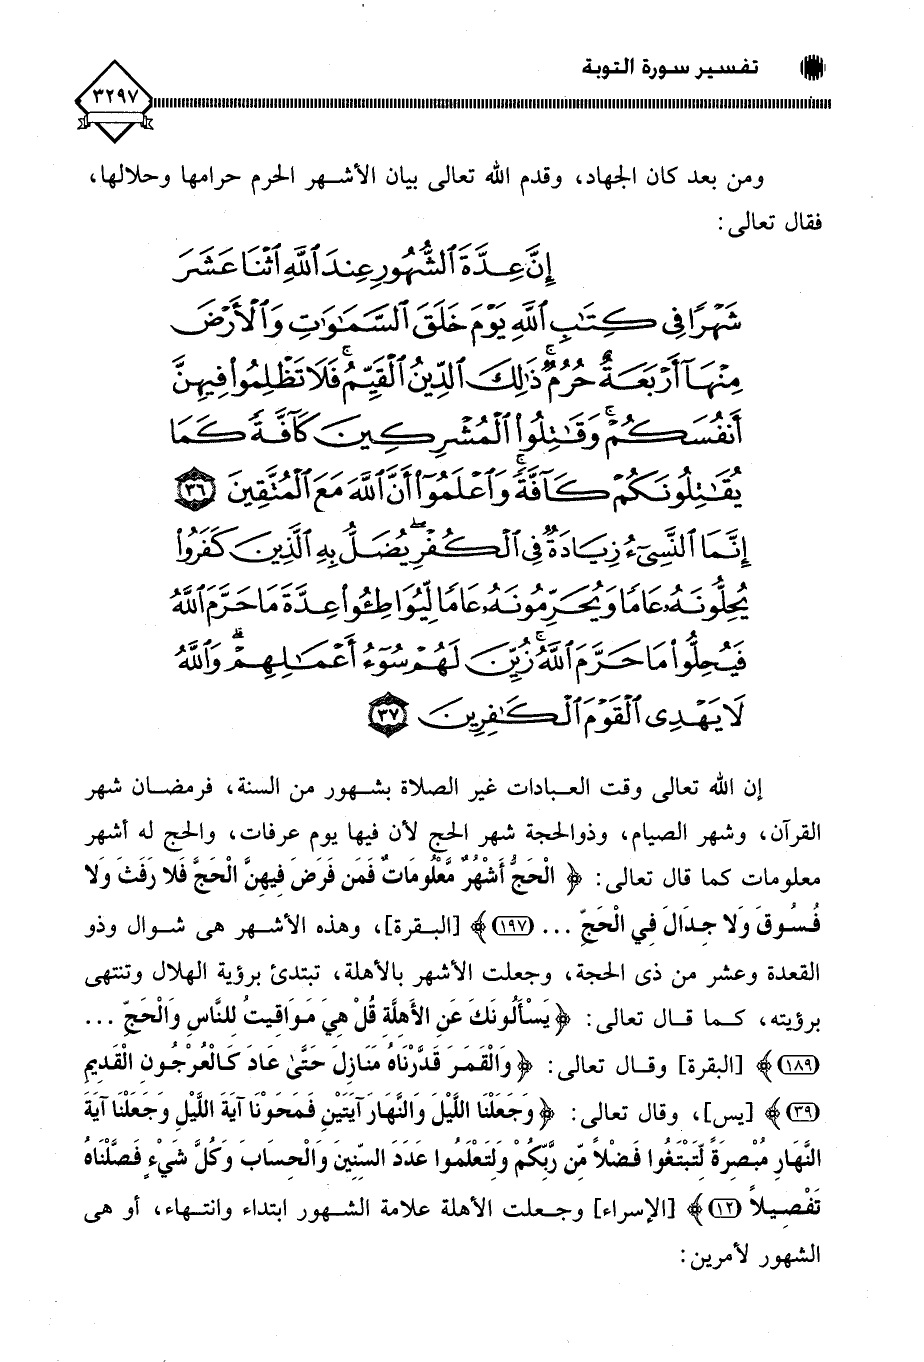 تفسير سورة التوبة
٣٢٩٧
ومن بعد كان الجهاد، وقدم الله تعالى بيان الأشهر الحرم حرامها وحلالها،
فقال تعالى:
إِنَّ عِدَّةَ ٱلشُّهُورِ عِندَ ٱللَّهِ ٱثْنَا عَشَرَ
شَهْرًا فِي كِتَٰبِ ٱللَّهِ يَوْمَ خَلَقَ ٱلسَّمَٰوَٰتِ وَٱلْأَرْضَ
مِنْهَآ أَرْبَعَةٌ حُرُمٌ ۚ ذَٰلِكَ ٱلدِّينُ ٱلْقَيِّمُ ۚ فَلَا تَظْلِمُوا۟ فِيهِنَّ
أَنفُسَكُمْ ۚ وَقَٰتِلُوا۟ ٱلْمُشْرِكِينَ كَآفَّةً كَمَا
يُقَٰتِلُونَكُمْ كَآفَّةً ۚ وَٱعْلَمُوٓا۟ أَنَّ ٱللَّهَ مَعَ ٱلْمُتَّقِينَ ٣٦
إِنَّمَا ٱلنَّسِىٓءُ زِيَادَةٌ فِى ٱلْكُفْرِ ۖ يُضَلُّ بِهِ ٱلَّذِينَ كَفَرُوا۟
يُحِلُّونَهُۥ عَامًا وَيُحَرِّمُونَهُۥ عَامًا لِّيُوَاطِـُٔوا۟ عِدَّةَ مَا حَرَّمَ ٱللَّهُ
فَيُحِلُّوا۟ مَا حَرَّمَ ٱللَّهُ ۚ زُيِّنَ لَهُمْ سُوٓءُ أَعْمَٰلِهِمْ ۗ وَٱللَّهُ
لَا يَهْدِى ٱلْقَوْمَ ٱلْكَٰفِرِينَ ٣٧
إن الله تعالى وقت العبادات غير الصلاة بشهور من السنة، فرمضان شهر
القرآن، وشهر الصيام، وذوالحجة شهر الحج لأن فيها يوم عرفات، والحج له أشهر
معلومات كما قال تعالى: ﴿ الْحَجُّ أَشْهُرٌ مَّعْلُومَاتٌ فَمَن فَرَضَ فِيهِنَّ الْحَجَّ فَلا رَفَثَ وَلا
فُسُوقَ وَلا جِدَالَ فِي الْحَجِّ ... (١٩٧) ﴾ [البقرة]، وهذه الأشهر هى شوال وذو
القعدة وعشر من ذى الحجة، وجعلت الأشهر بالأهلة، تبتدئ برؤية الهلال وتنتهى
برؤيته، كما قال تعالى: ﴿ يَسْأَلُونَكَ عَنِ الأَهِلَّةِ قُلْ هِيَ مَوَاقِيتُ لِلنَّاسِ وَالْحَجِّ ...
(١٨٩) ﴾ [البقرة] وقال تعالى: ﴿ وَالْقَمَرَ قَدَّرْنَاهُ مَنَازِلَ حَتَّىٰ عَادَ كَالْعُرْجُونِ الْقَدِيمِ
(٣٩) ﴾ [يس]، وقال تعالى: ﴿ وَجَعَلْنَا اللَّيْلَ وَالنَّهَارَ آيَتَيْنِ فَمَحَوْنَا آيَةَ اللَّيْلِ وَجَعَلْنَا آيَةَ
النَّهَارِ مُبْصِرَةً لِّتَبْتَغُوا فَضْلاً مِّن رَّبِّكُمْ وَلِتَعْلَمُوا عَدَدَ السِّنِينَ وَالْحِسَابَ وَكُلَّ شَيْءٍ فَصَّلْنَاهُ
تَفْصِيلاً (١٢) ﴾ [الإسراء] وجعلت الأهلة علامة الشهور ابتداء وانتهاء، أو هى
الشهور لأمرين: